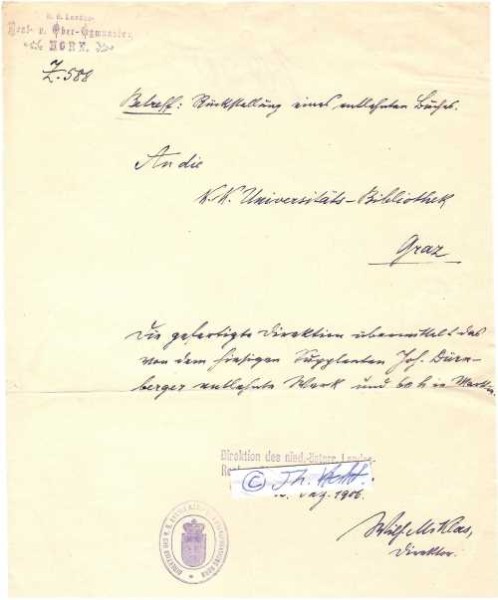 N. ö. Landes-
Real- u. Ober-Gymnasium
HORN.
Z. 588
Betreff: Rückstellung eines entlehnten Buches.
An die
K. K. Universitäts-Bibliothek
Graz
Die gefertigte Direktion übermittelt das
von dem hiesigen Supplenten Joh. Dürn-
berger entlehnte Werk und 60 h in Marken.
Direktion des nied.-österr. Landes-
© Th.
1906.
Wilh. Miklas,
Direktor.